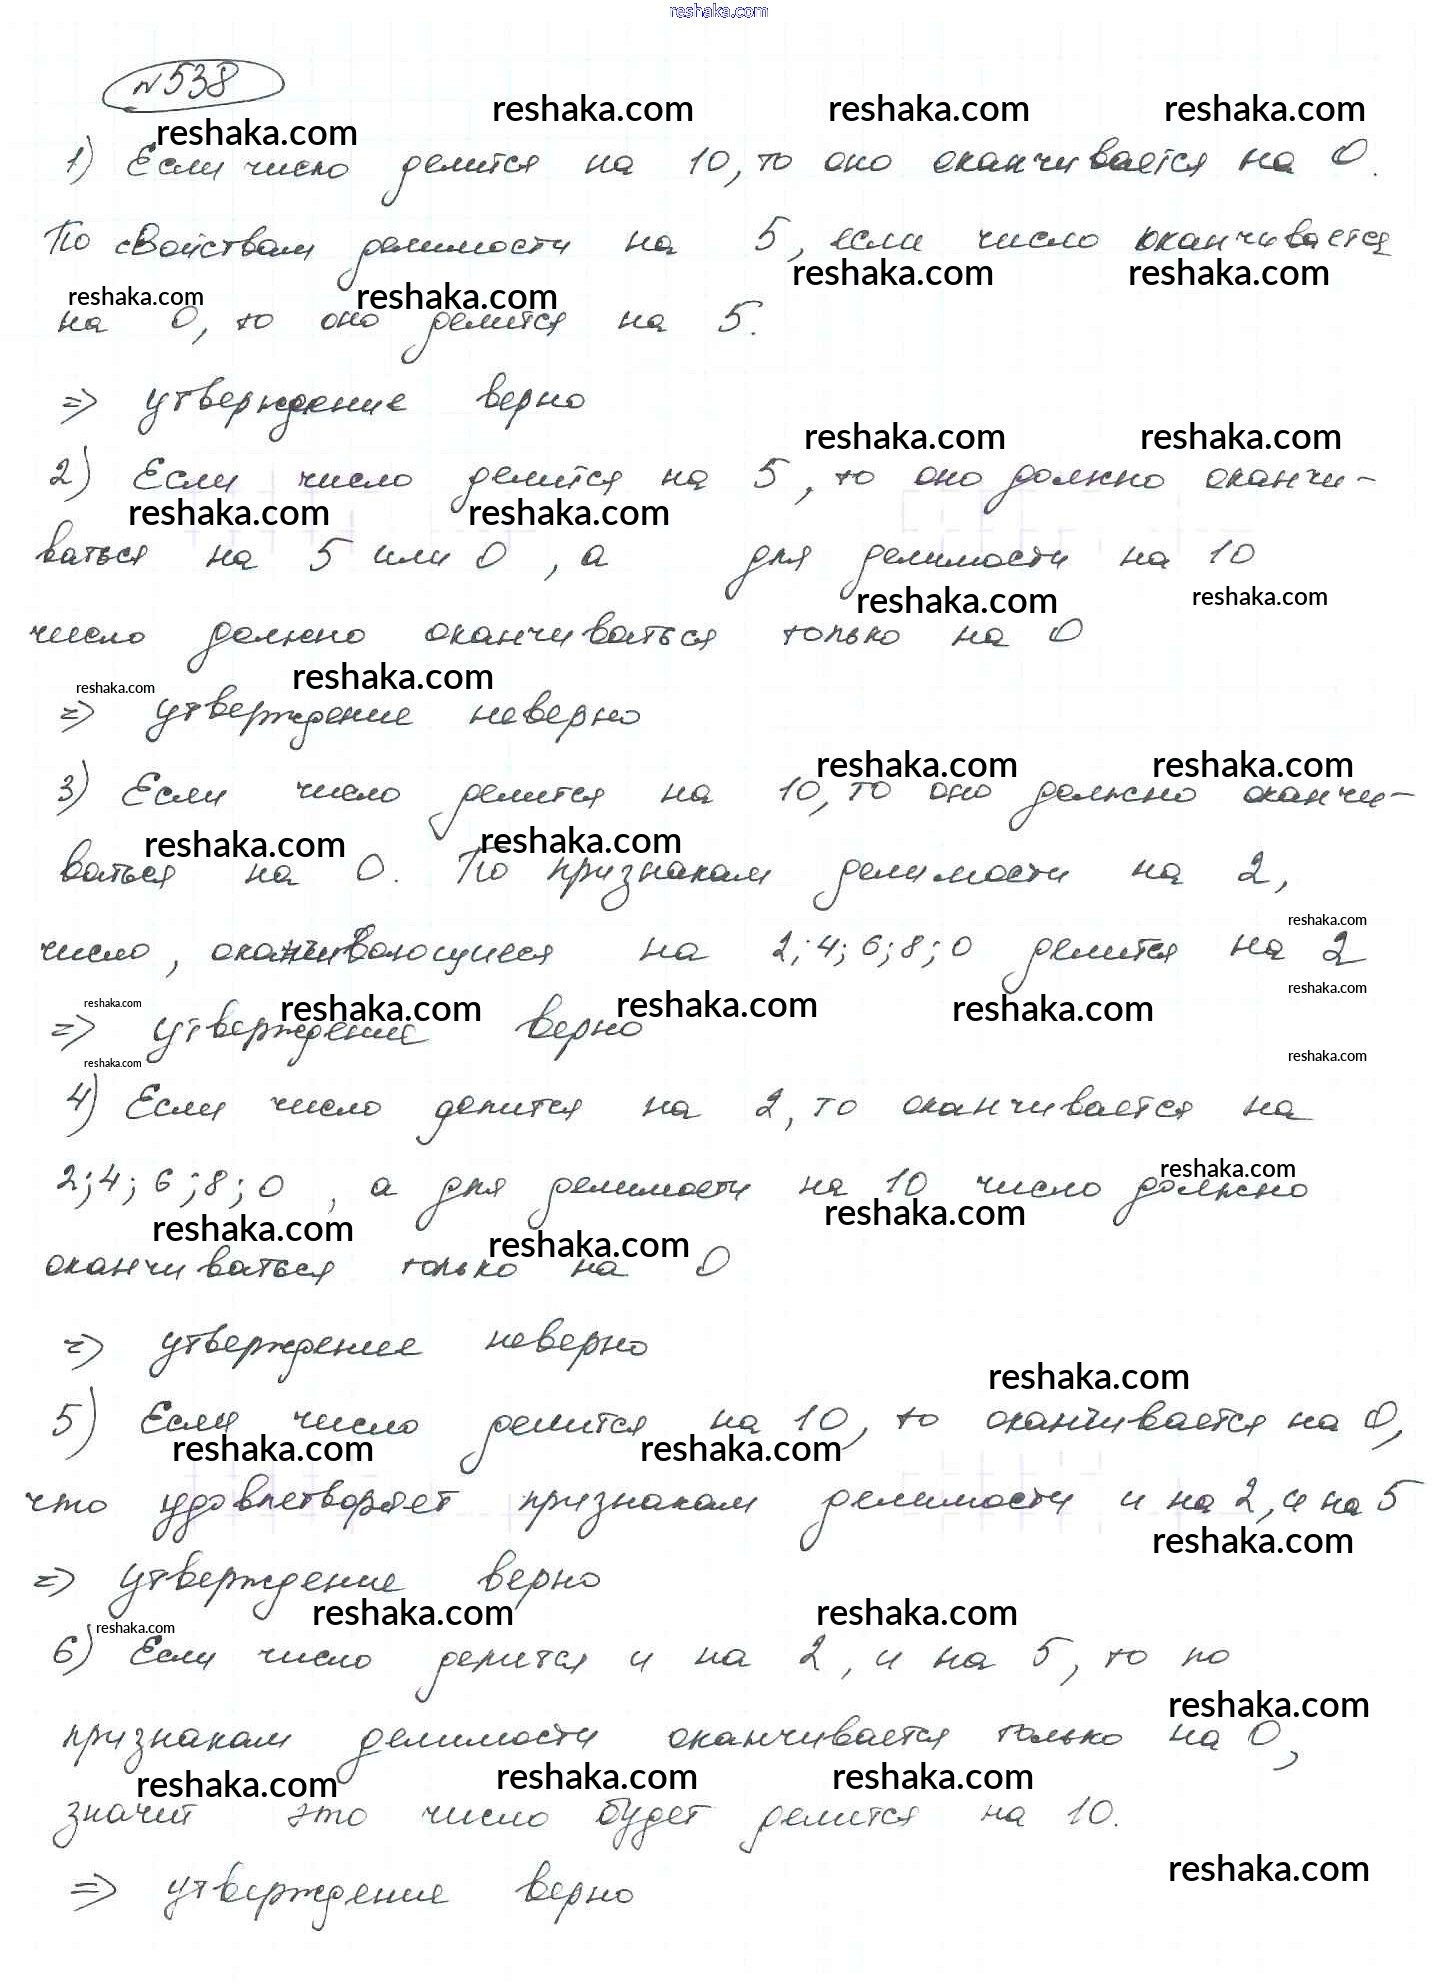 reshaka.com
№538
reshaka.com reshaka.com reshaka.com
reshaka.com
1) Если число делится на 10, то оно оканчивается на 0.
По свойствам делимости на 5, если число оканчивается
reshaka.com reshaka.com
reshaka.com reshaka.com
на 0, то оно делится на 5.
=> утверждение верно
reshaka.com reshaka.com
2) Если число делится на 5, то оно должно оканчи-
reshaka.com reshaka.com
ваться на 5 или 0, а для делимости на 10
reshaka.com reshaka.com
число должно оканчиваться только на 0
reshaka.com
reshaka.com
=> утверждение неверно
reshaka.com reshaka.com
3) Если число делится на 10, то оно должно оканчи-
reshaka.com reshaka.com
ваться на 0. По признакам делимости на 2,
reshaka.com
число, оканчивающиеся на 2; 4; 6; 8; 0 делится на 2
reshaka.com
reshaka.com reshaka.com reshaka.com reshaka.com
=> утверждение верно
reshaka.com reshaka.com
4) Если число делится на 2, то оканчивается на
reshaka.com
2; 4; 6; 8; 0, а для делимости на 10 число должно
reshaka.com reshaka.com reshaka.com
оканчиваться только на 0
=> утверждение неверно
reshaka.com
5) Если число делится на 10, то оканчивается на 0,
reshaka.com reshaka.com
что удовлетворяет признакам делимости и на 2, и на 5
reshaka.com
=> утверждение верно
reshaka.com reshaka.com
reshaka.com
6) Если число делится и на 2, и на 5, то по
reshaka.com
признакам делимости оканчивается только на 0,
reshaka.com reshaka.com reshaka.com
значит это число будет делится на 10.
reshaka.com
=> утверждение верно